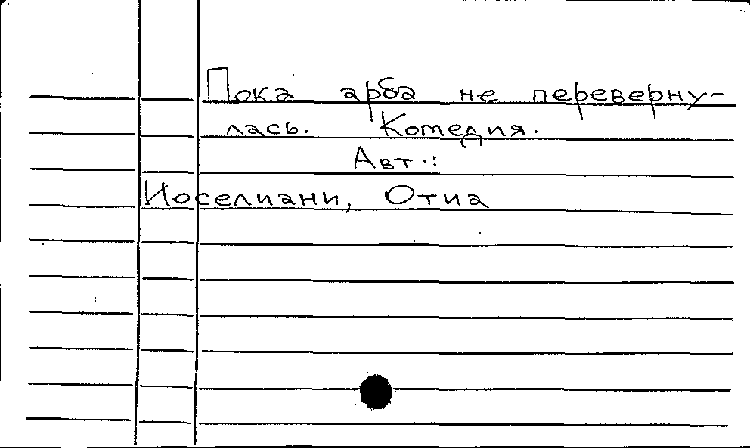 Пока арба не переверну-
лась. Комедия.
Авт.:
Иоселиани, Отиа